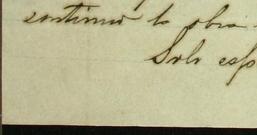 continuar la obra
Solo esp